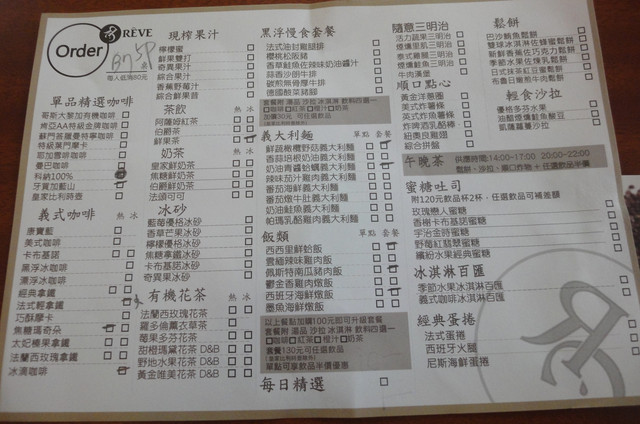 Order
RÊVE
B7 5P
每人低消80元
單品精選咖啡
哥斯大黎加有機咖啡
肯亞AA特級金牌咖啡
蘇門答臘曼特寧咖啡
特級葉門摩卡
耶加雪啡咖啡
曼巴咖啡
科納100%
牙買加藍山
皇家比利時壺
義式咖啡
康寶藍
美式咖啡
卡布基諾
黑浮冰咖啡
漂浮冰咖啡
經典拿鐵
法式輕拿鐵
巧酥摩卡
焦糖瑪奇朵
太妃榛果拿鐵
法蘭西玫瑰拿鐵
冰滴咖啡
現榨果汁
檸檬蜜
鮮果雙打
奇異果汁
綜合果汁
香蕉野莓汁
綜合鮮果昔
茶飲 熱 冰
阿薩姆紅茶
伯爵茶
鮮果茶
奶茶
皇家鮮奶茶
焦糖鮮奶茶
伯爵鮮奶茶
法頌可可
冰沙
藍莓優格冰沙
香草芒果冰沙
檸檬優格冰沙
焦糖牛奶冰沙
卡布基諾冰沙
奇異果冰沙
有機花茶 熱 冰
法蘭西玫瑰花茶
羅多倫薰衣草茶
莓果多芬花茶
甜橙瑪黛花茶 D&B
野地水果花茶 D&B
黃金唯美花茶 D&B
黑浮慢食套餐
法式油封雞腿排
櫻桃松阪豬
香草鮭魚佐辣味奶油醬汁
蒜香沙朗牛排
碳煎無骨厚牛排
德國臉菜豬腳
套餐附 湯品 沙拉 冰淇淋 飲料四選一
咖啡 紅茶 橙汁 奶茶
加價30元 可任選飲品
義大利麵 單點 套餐
鮮蔬橄欖野菇義大利麵
香蒜培根奶油義大利麵
奶油青醬蛤蠣義大利麵
辣味茄汁雞肉義大利麵
番茄海鮮義大利麵
番茄燉牛肚義大利麵
奶油鮭魚義大利麵
帕瑪乳酪雞肉義大利麵
飯類 單點 套餐
西西里鮮蛤飯
雲緬辣味雞肉飯
佩斯特南瓜豬肉飯
鬱金香雞肉燉飯
西班牙海鮮燉飯
墨魚海鮮燉飯
以上餐點加購100元即可升級套餐
套餐附 湯品 沙拉 冰淇淋 飲料四選一
咖啡 紅茶 橙汁 奶茶
套餐130元可任選飲品
單點可享飲品半價優惠
每日精選
隨意三明治
活力蔬果三明治
燻雞里肌三明治
泰式豬柳三明治
燻鮭鮭魚三明治
牛肉漢堡
順口點心
黃金洋蔥圈
美式炸薯條
英式炸魚薯條
炸啤酒乳酪棒
紐奧良雞翅
綜合拼盤
鬆餅
巴沙鮪魚鬆餅
雙球冰淇淋佐蜂蜜鬆餅
新鮮香蕉佐巧克力鬆餅
季節水果佐煉乳鬆餅
日式抹茶紅豆蜜鬆餅
布魯日雞煎牛奶鬆餅
輕食沙拉
優格多芬水果
油醋燻鮭魚酸豆
凱薩蘿蔓沙拉
午晚茶
供應時間:14:00~17:00 20:00~22:00
鬆餅、沙拉、順口炸物 + 任選飲品半價
蜜糖吐司
附120元飲品杯2杯，任選飲品可補差額
玫瑰戀人蜜糖
香榭卡布諾蜜糖
宇治金時蜜糖
野莓紅翡翠蜜糖
繽紛水果經典蜜糖
冰淇淋百匯
季節水果冰淇淋百匯
義式咖啡冰淇淋百匯
經典蛋捲
法式起司蛋捲
西班牙火腿
尼斯海鮮蛋捲